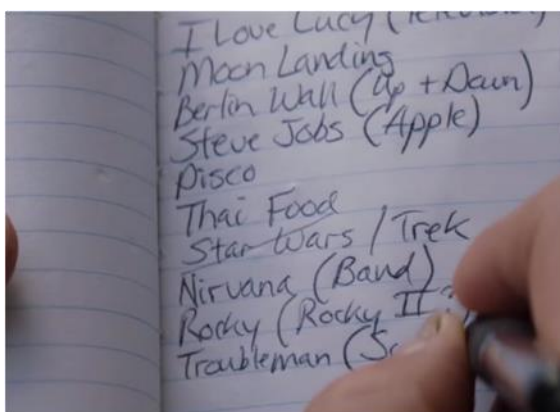 I Love Lucy (
Moon Landing
Berlin Wall (Up + Down)
Steve Jobs (Apple)
Disco
Thai Food
Star Wars / Trek
Nirvana (Band)
Rocky (Rocky II?
Troubleman (